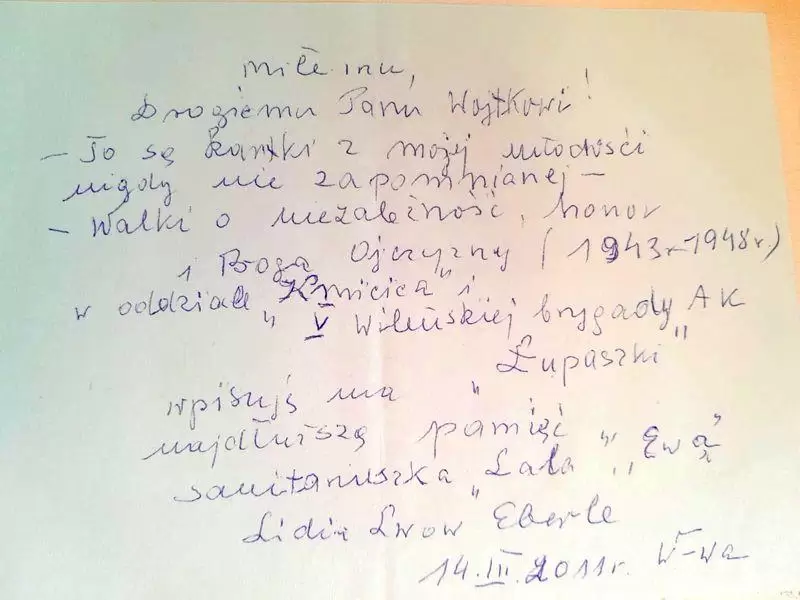 Miłemu,
Drogiemu Panu Wojtkowi!
- To są kartki z mojej młodości
nigdy nie zapomnianej -
- Walki o niezależność, honor
i Boga Ojczyzny (1943r-1948r.)
w oddziale "Kmicica" i
V Wileńskiej brygady AK
"Łupaszki"
wpisuję na
najdłuższą pamięć
sanitariuszka "Lala", "Ewa"
Lidia Lwow Eberle
14.III.2011r. W-wa